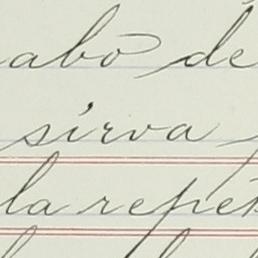 abo de
sirva
la repet